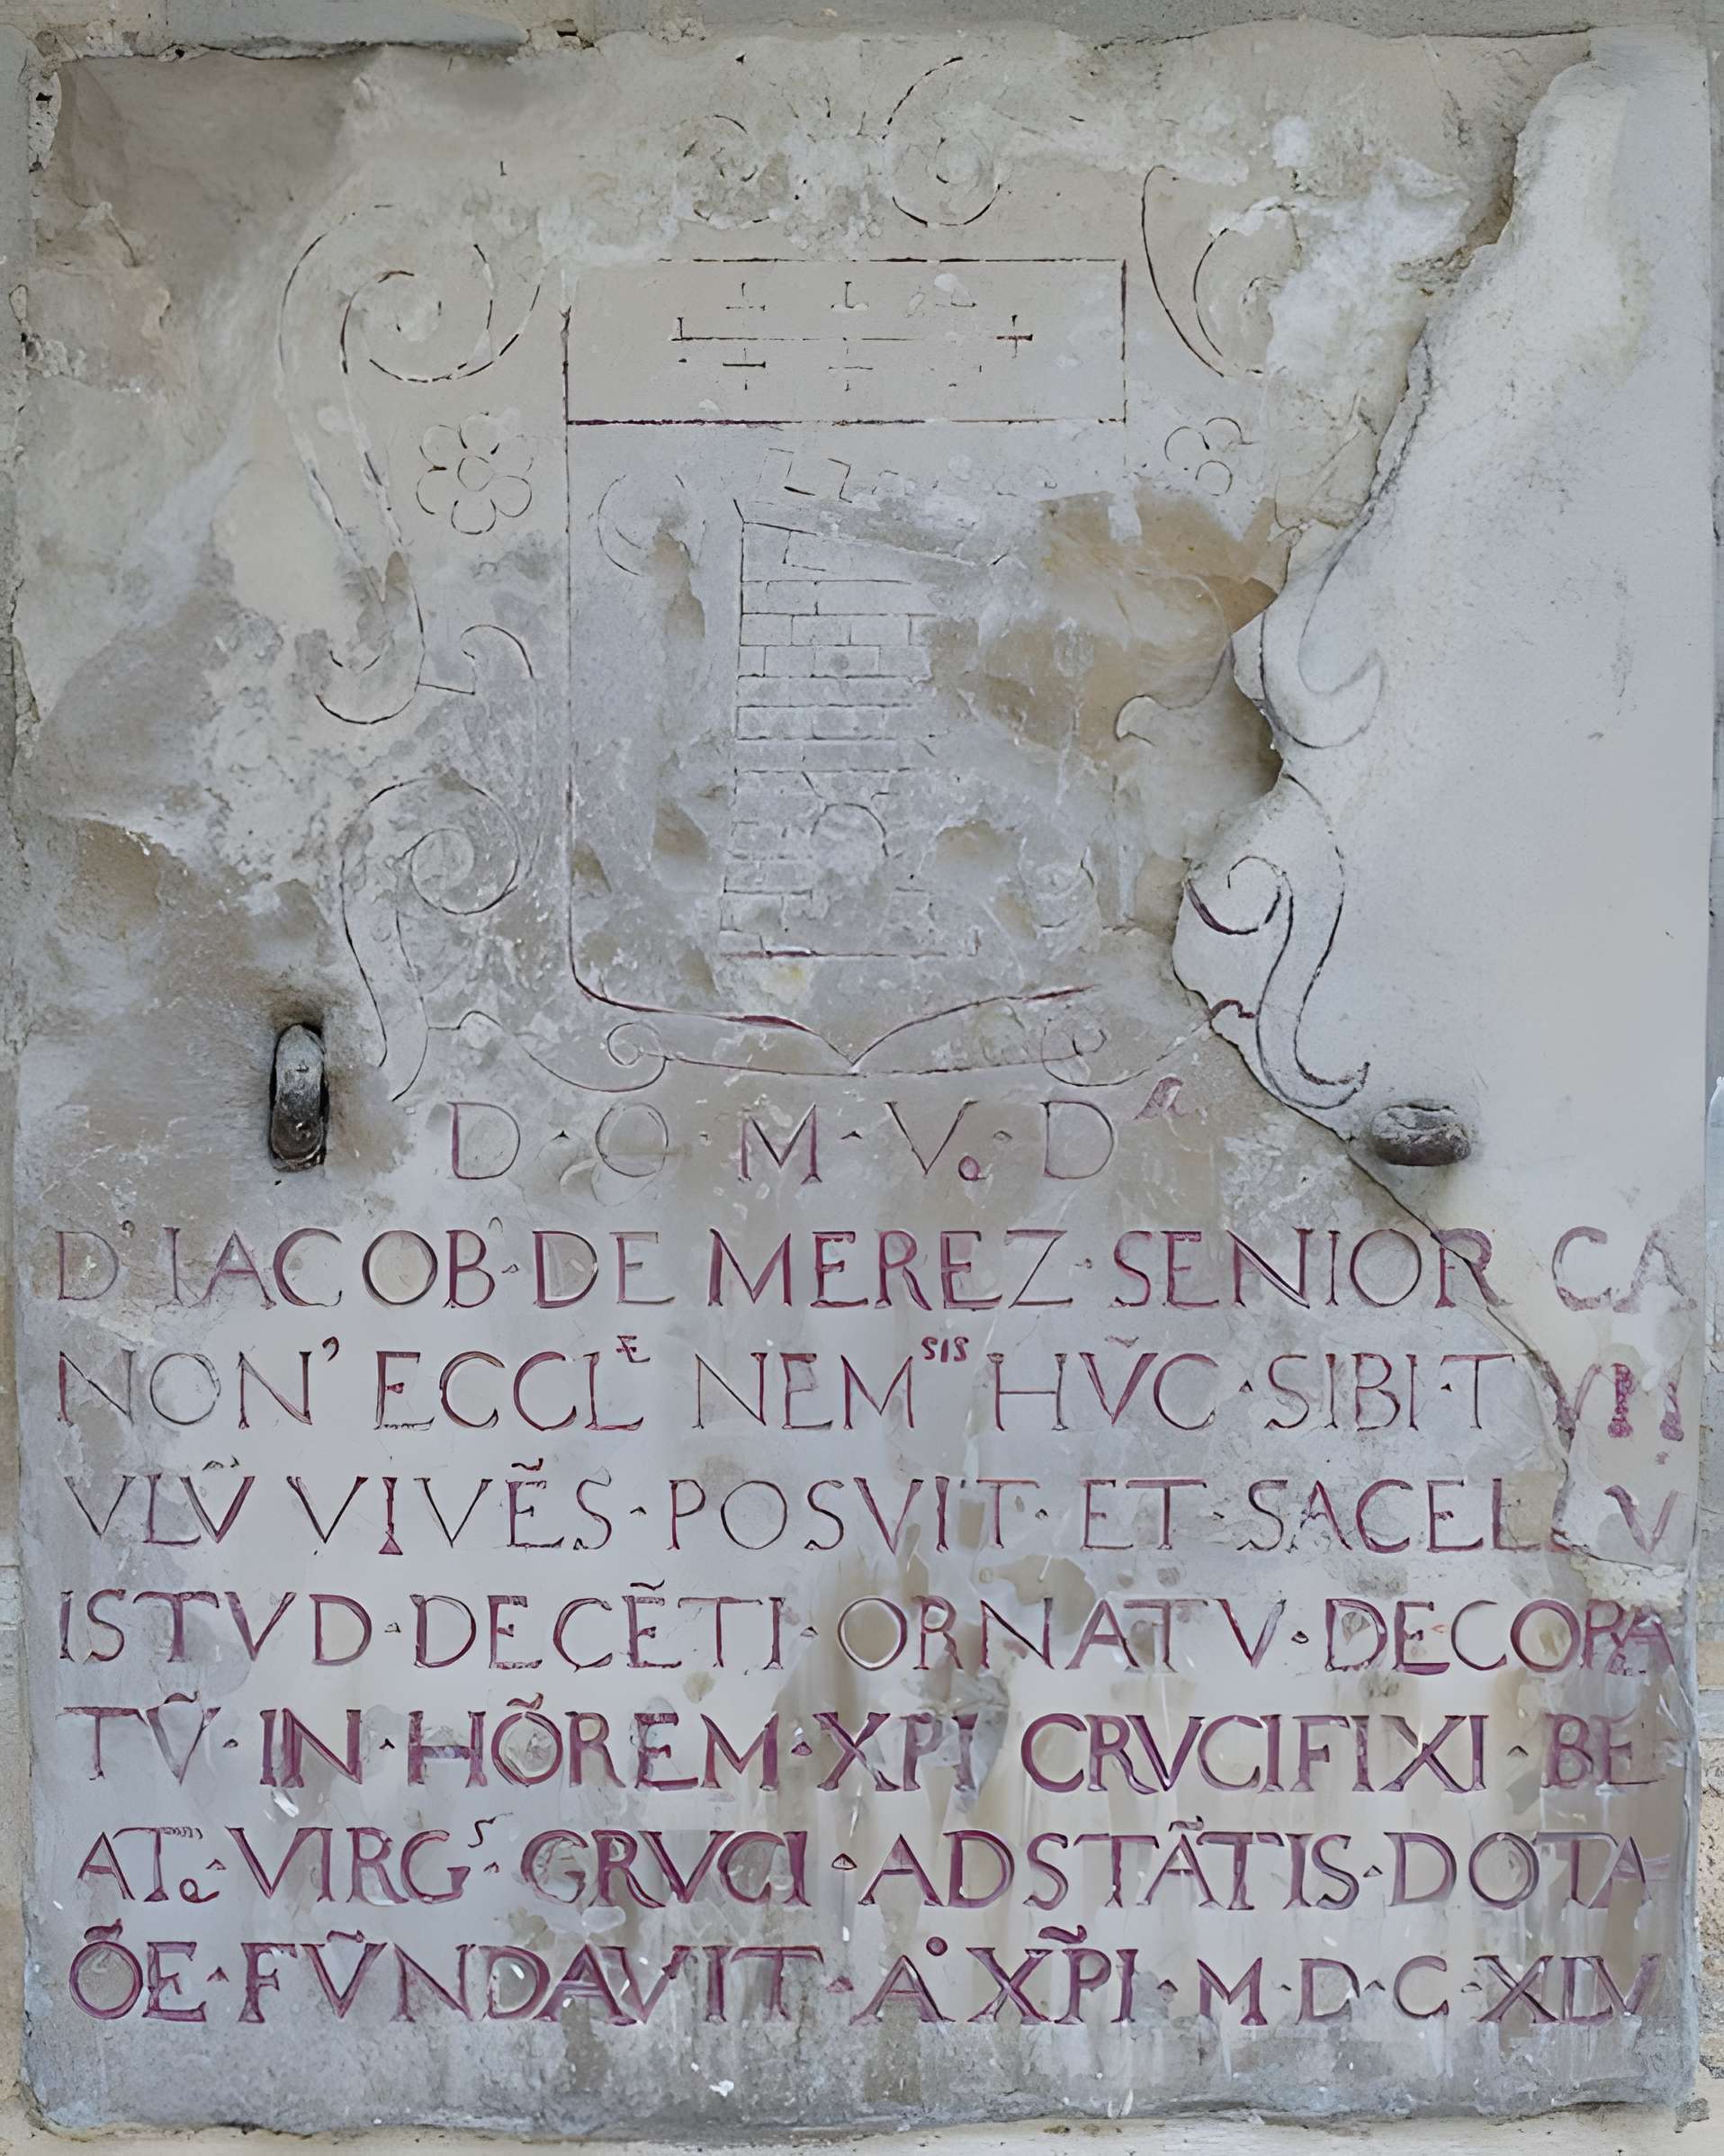 D · O · M · Vo · Dᵃ
D' IACOB · DE MEREZ · SENIOR CA
NON' ECCLᴱ NEMˢⁱˢ HṼC · SIBI · TVM
VLṼ VIVẼS · POSVIT · ET · SACELLV
ISTVD · DECẼTI · ORNATV · DECORA
TṼ · IN · HÕREM · XPI CRVCIFIXI · BE
ATe · VIRGˢ · CRVCI · ADSTÃTIS · DOTA
ÕE · FṼNDAVIT · A° XP̃I · M · D · C · XLV